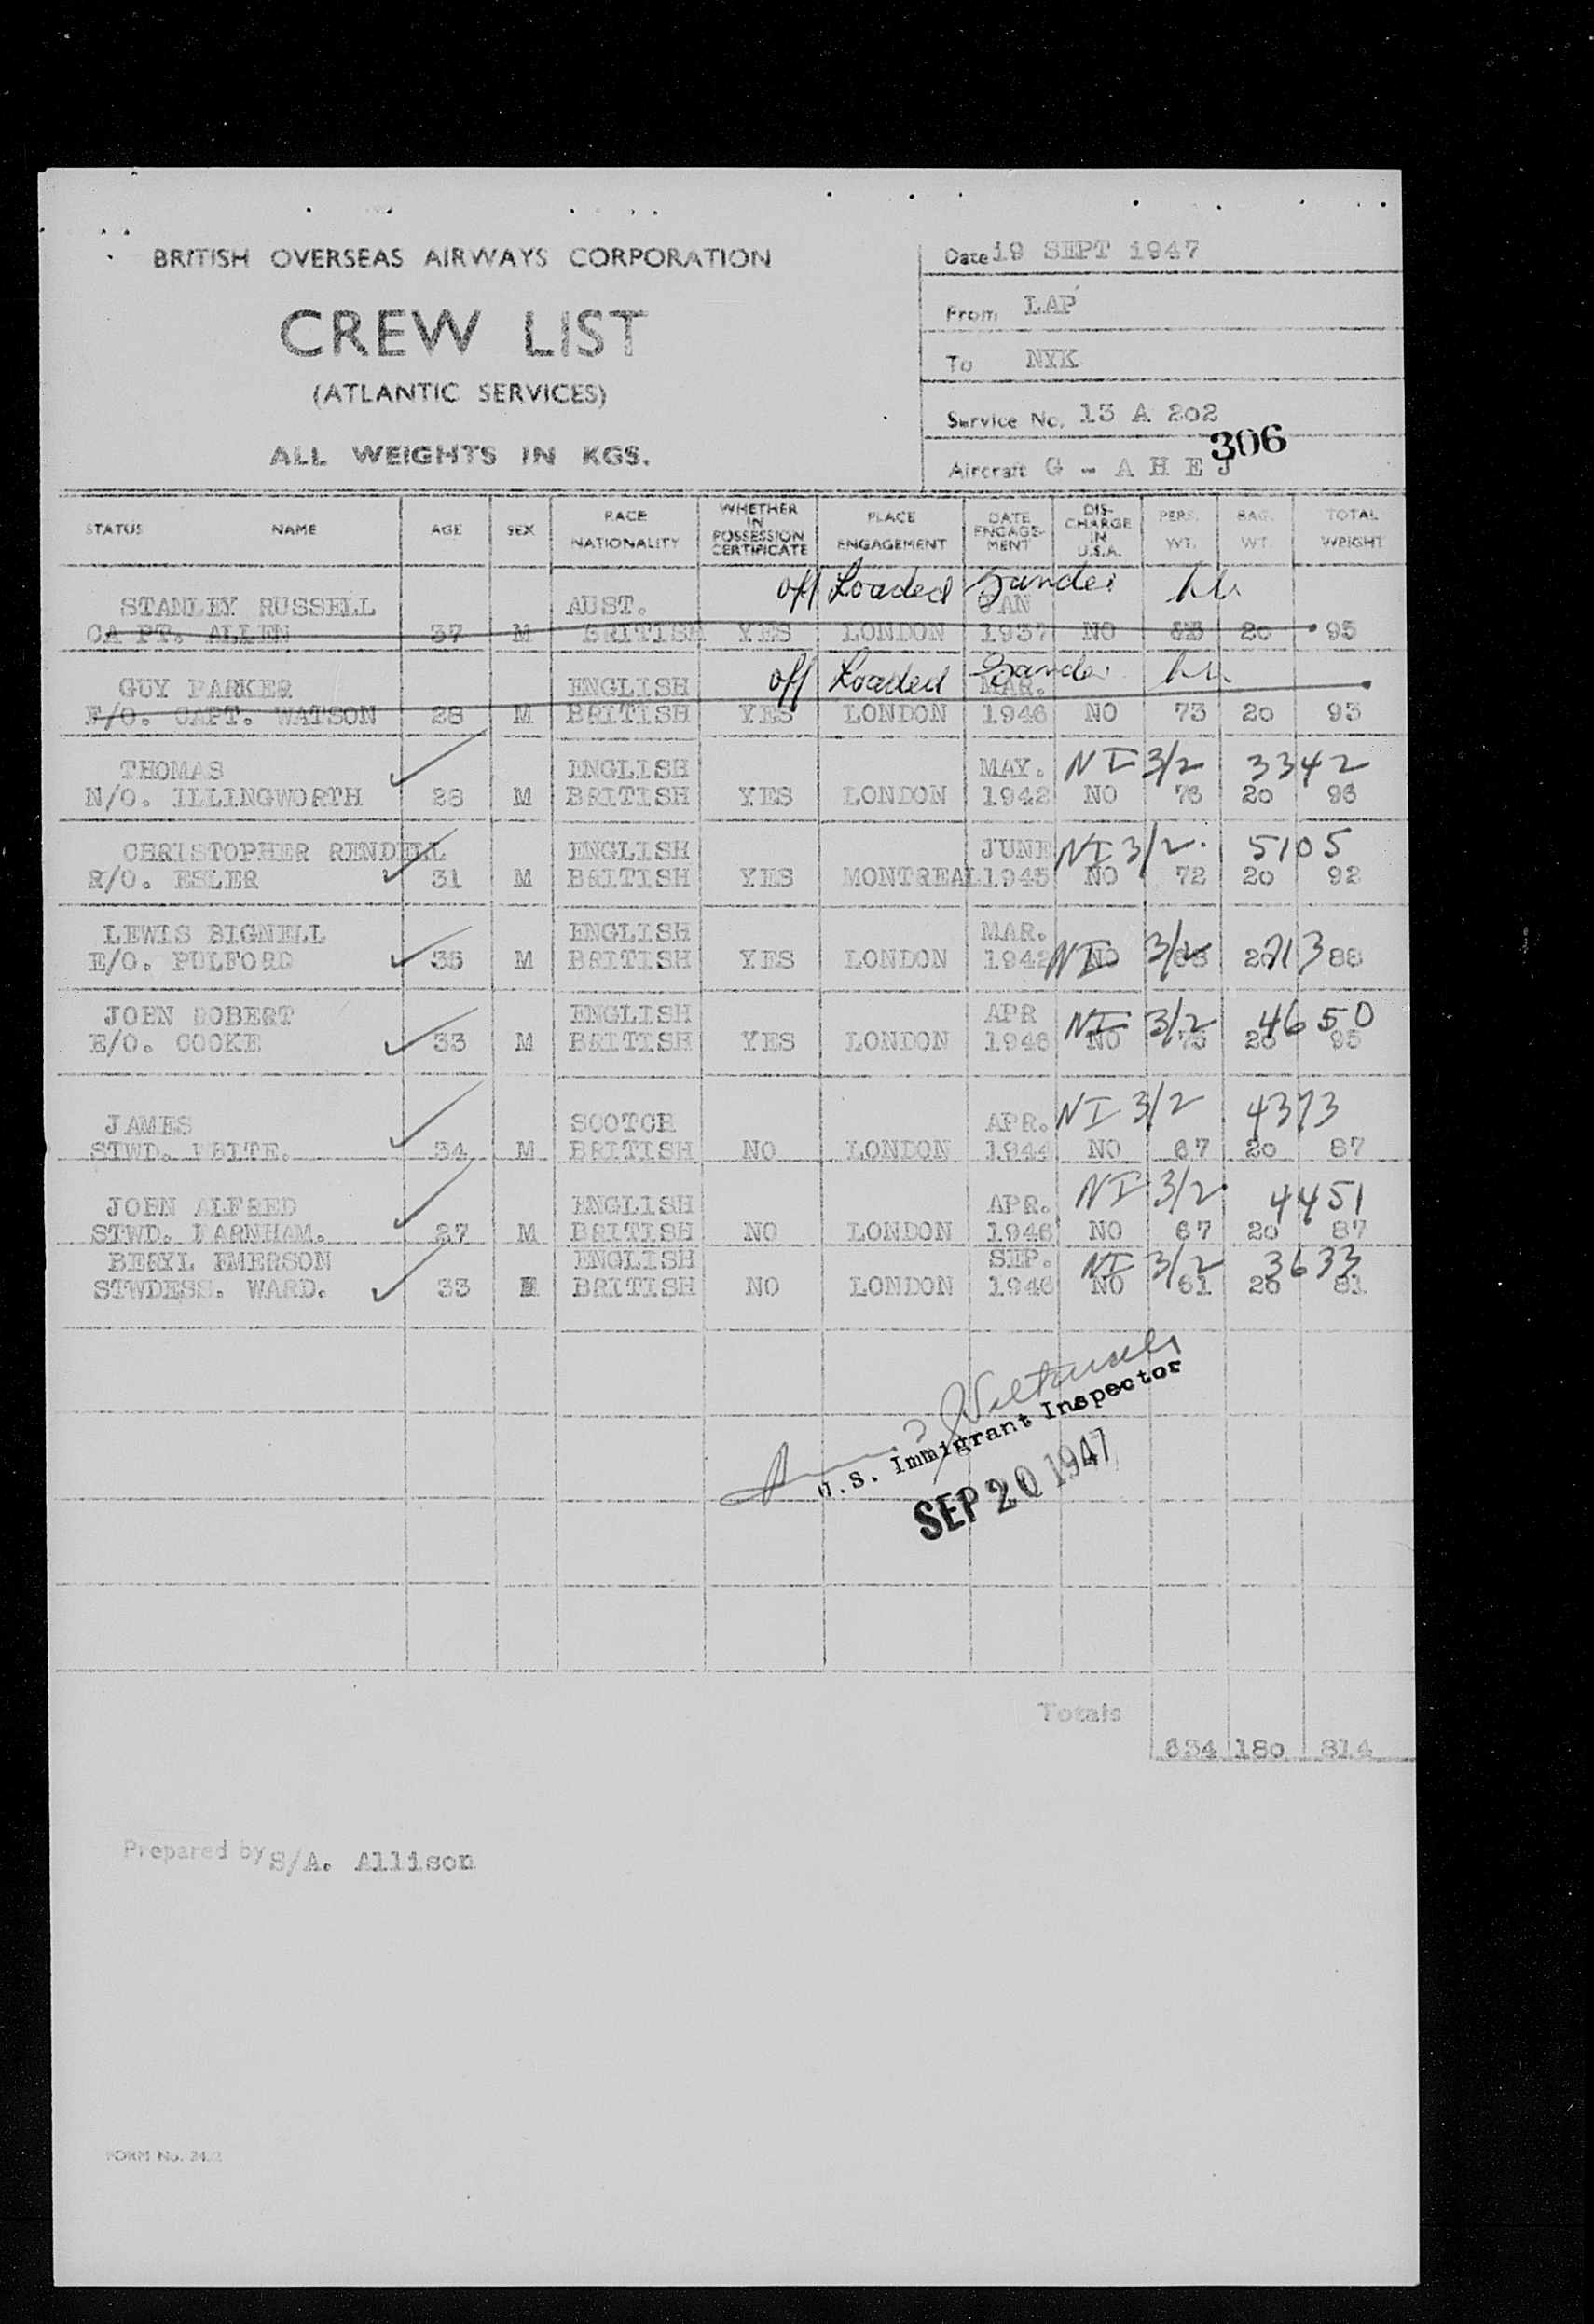 BRITISH OVERSEAS AIRWAYS CORPORATION
CREW LIST
(ATLANTIC SERVICES)
ALL WEIGHTS IN KGS.
Date 19 SEPT 1947
From LAP
To NYK
Service No. 13 A 202
306
Aircraft G - A H E J
STATUS NAME AGE SEX RACE NATIONALITY WHETHER IN POSSESSION CERTIFICATE PLACE ENGAGEMENT DATE ENGAGE-MENT DIS-CHARGE IN U.S.A. PERS. WT. BAG. WT. TOTAL WEIGHT
off Loaded Gander
STANLEY RUSSELL AUST. JAN
CAPT. ALLEN 37 M BRITISH YES LONDON 1937 NO 20 95
off Loaded Gander
GUY PARKER ENGLISH MAR.
F/O. CAPT. WATSON 28 M BRITISH YES LONDON 1946 NO 73 20 93
THOMAS ENGLISH MAY. NI 3/2 3342
N/O. ILLINGWORTH 28 M BRITISH YES LONDON 1942 NO 76 20 96
CHRISTOPHER RENDELL ENGLISH JUNE NI 3/2. 5105
R/O. ESLER 31 M BRITISH YES MONTREAL 1945 NO 72 20 92
LEWIS BIGNELL ENGLISH MAR. NI 3/2 713
E/O. PULFORD 35 M BRITISH YES LONDON 1942 NO 68 20 88
JOHN ROBERT ENGLISH APR NI 3/2 4650
E/O. COOKE 33 M BRITISH YES LONDON 1946 NO 75 20 95
JAMES SCOTCH APR. NI 3/2 4373
STWD. WHITE. 34 M BRITISH NO LONDON 1944 NO 67 20 87
JOHN ALFRED ENGLISH APR. NI 3/2 4451
STWD. FARNHAM. 27 M BRITISH NO LONDON 1946 NO 67 20 87
BERYL EMERSON ENGLISH SEP. NI 3/2 3633
STWDESS. WARD. 33 BRITISH NO LONDON 1946 NO 61 20 81
U.S. Immigrant Inspector
SEP 20 1947
Totals
634 180 814
Prepared by S/A. Allison
FORM No.